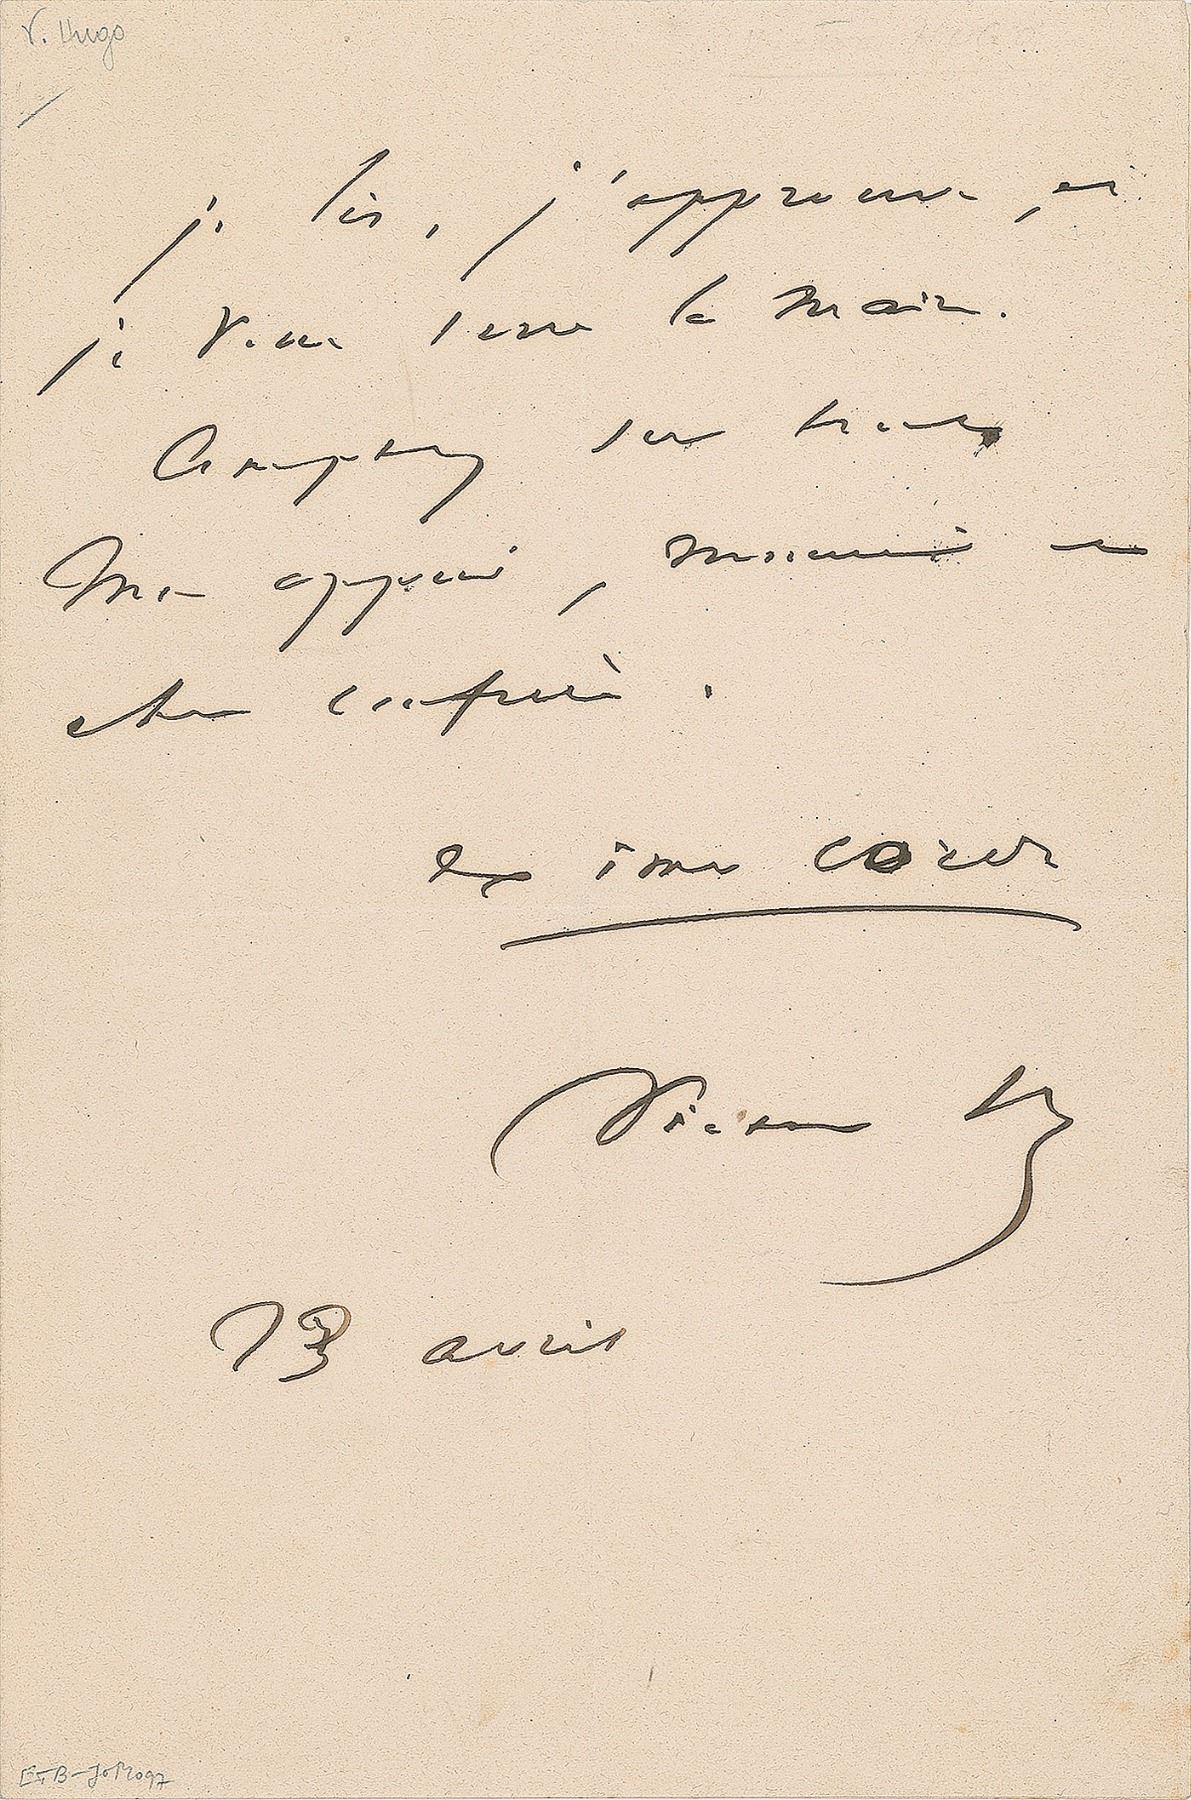 V. Hugo
je lis, j'approuve, et
je vous serre la main.
Comptez sur tout
mon appui, monsieur et
cher confrère.
ex imo corde
Victor H
13 avril